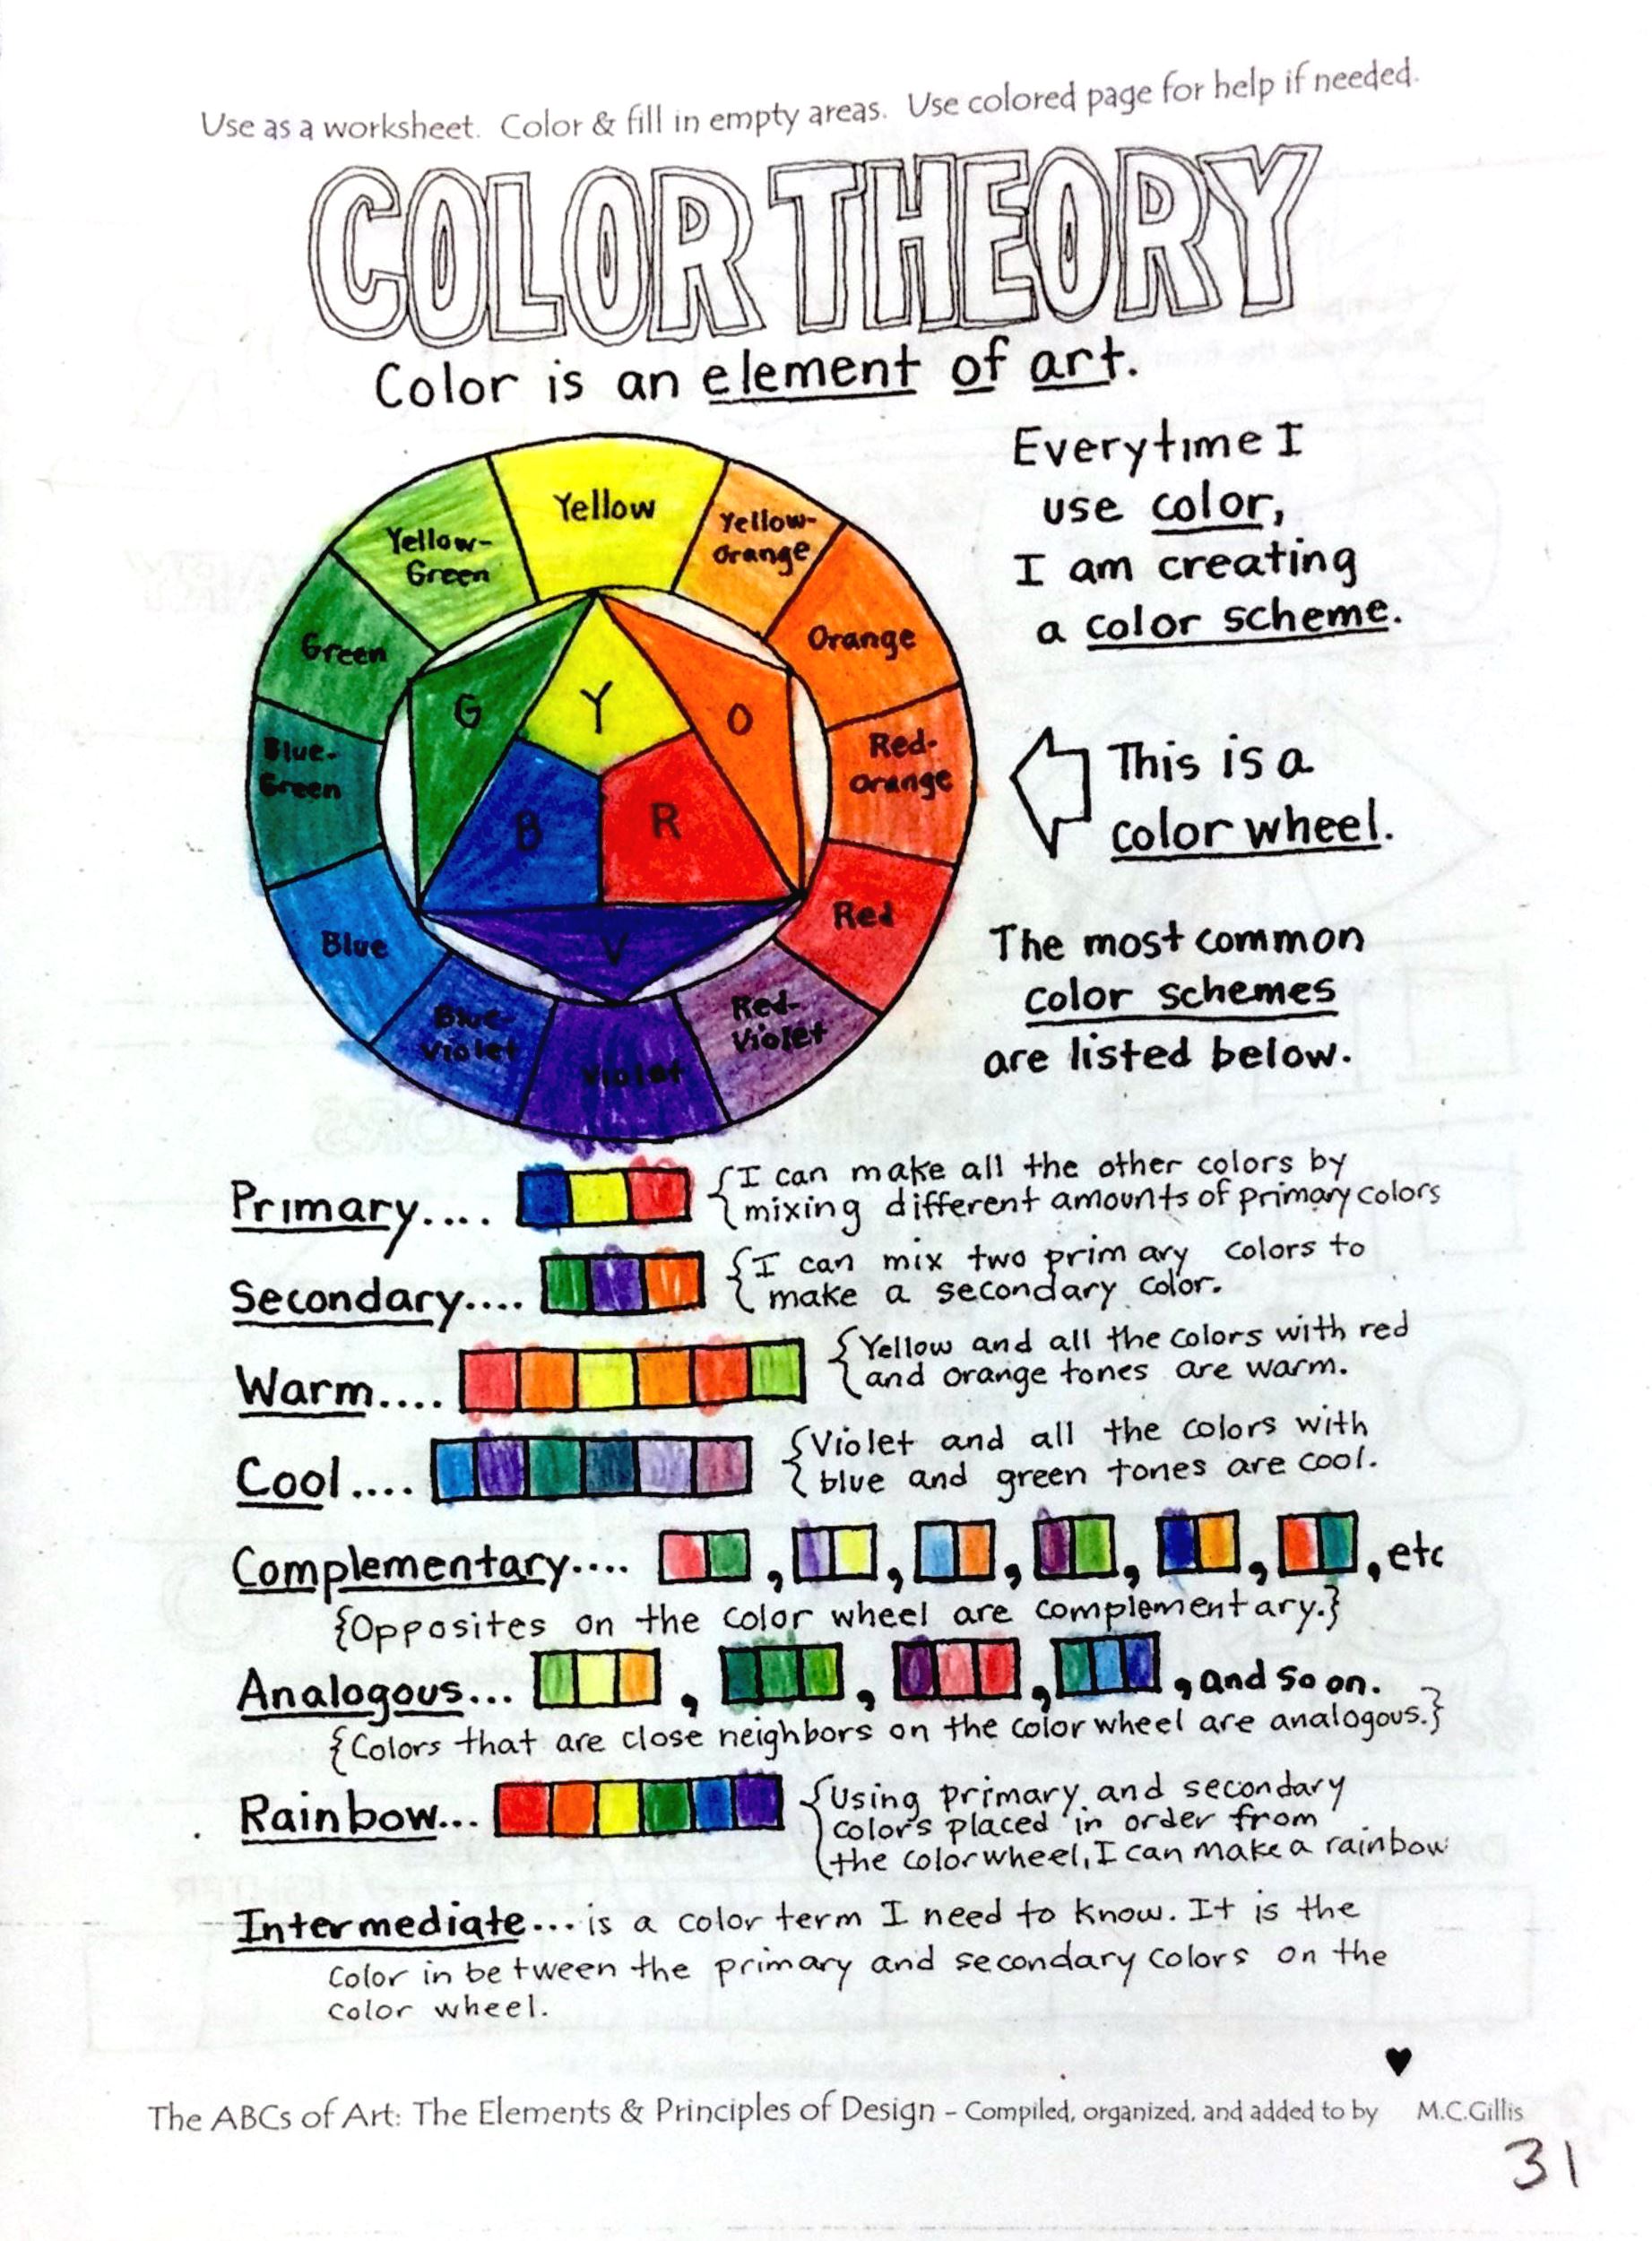 Use as a worksheet. Color & fill in empty areas. Use colored page for help if needed.
COLOR THEORY
Color is an element of art.
Everytime I
use color,
I am creating
a color scheme.
Yellow
Yellow-
Green
Yellow-
Orange
Green
Orange
G
Y
O
Blue-
Green
Red-
Orange
B
R
Blue
Red
V
Blue-
Violet
Violet
Red-
Violet
This is a
color wheel.
The most common
color schemes
are listed below.
Primary.... {I can make all the other colors by
mixing different amounts of primary colors
Secondary.... {I can mix two primary colors to
make a secondary color.
Warm.... {Yellow and all the colors with red
and orange tones are warm.
Cool.... {Violet and all the colors with
blue and green tones are cool.
Complementary.... , , , , , , etc
{Opposites on the color wheel are complementary.}
Analogous... , , , , and so on.
{Colors that are close neighbors on the color wheel are analogous.}
Rainbow... {Using primary and secondary
colors placed in order from
the color wheel, I can make a rainbow
Intermediate... is a color term I need to know. It is the
color in between the primary and secondary colors on the
color wheel.
The ABCs of Art: The Elements & Principles of Design - Compiled, organized, and added to by M.C.Gillis
31